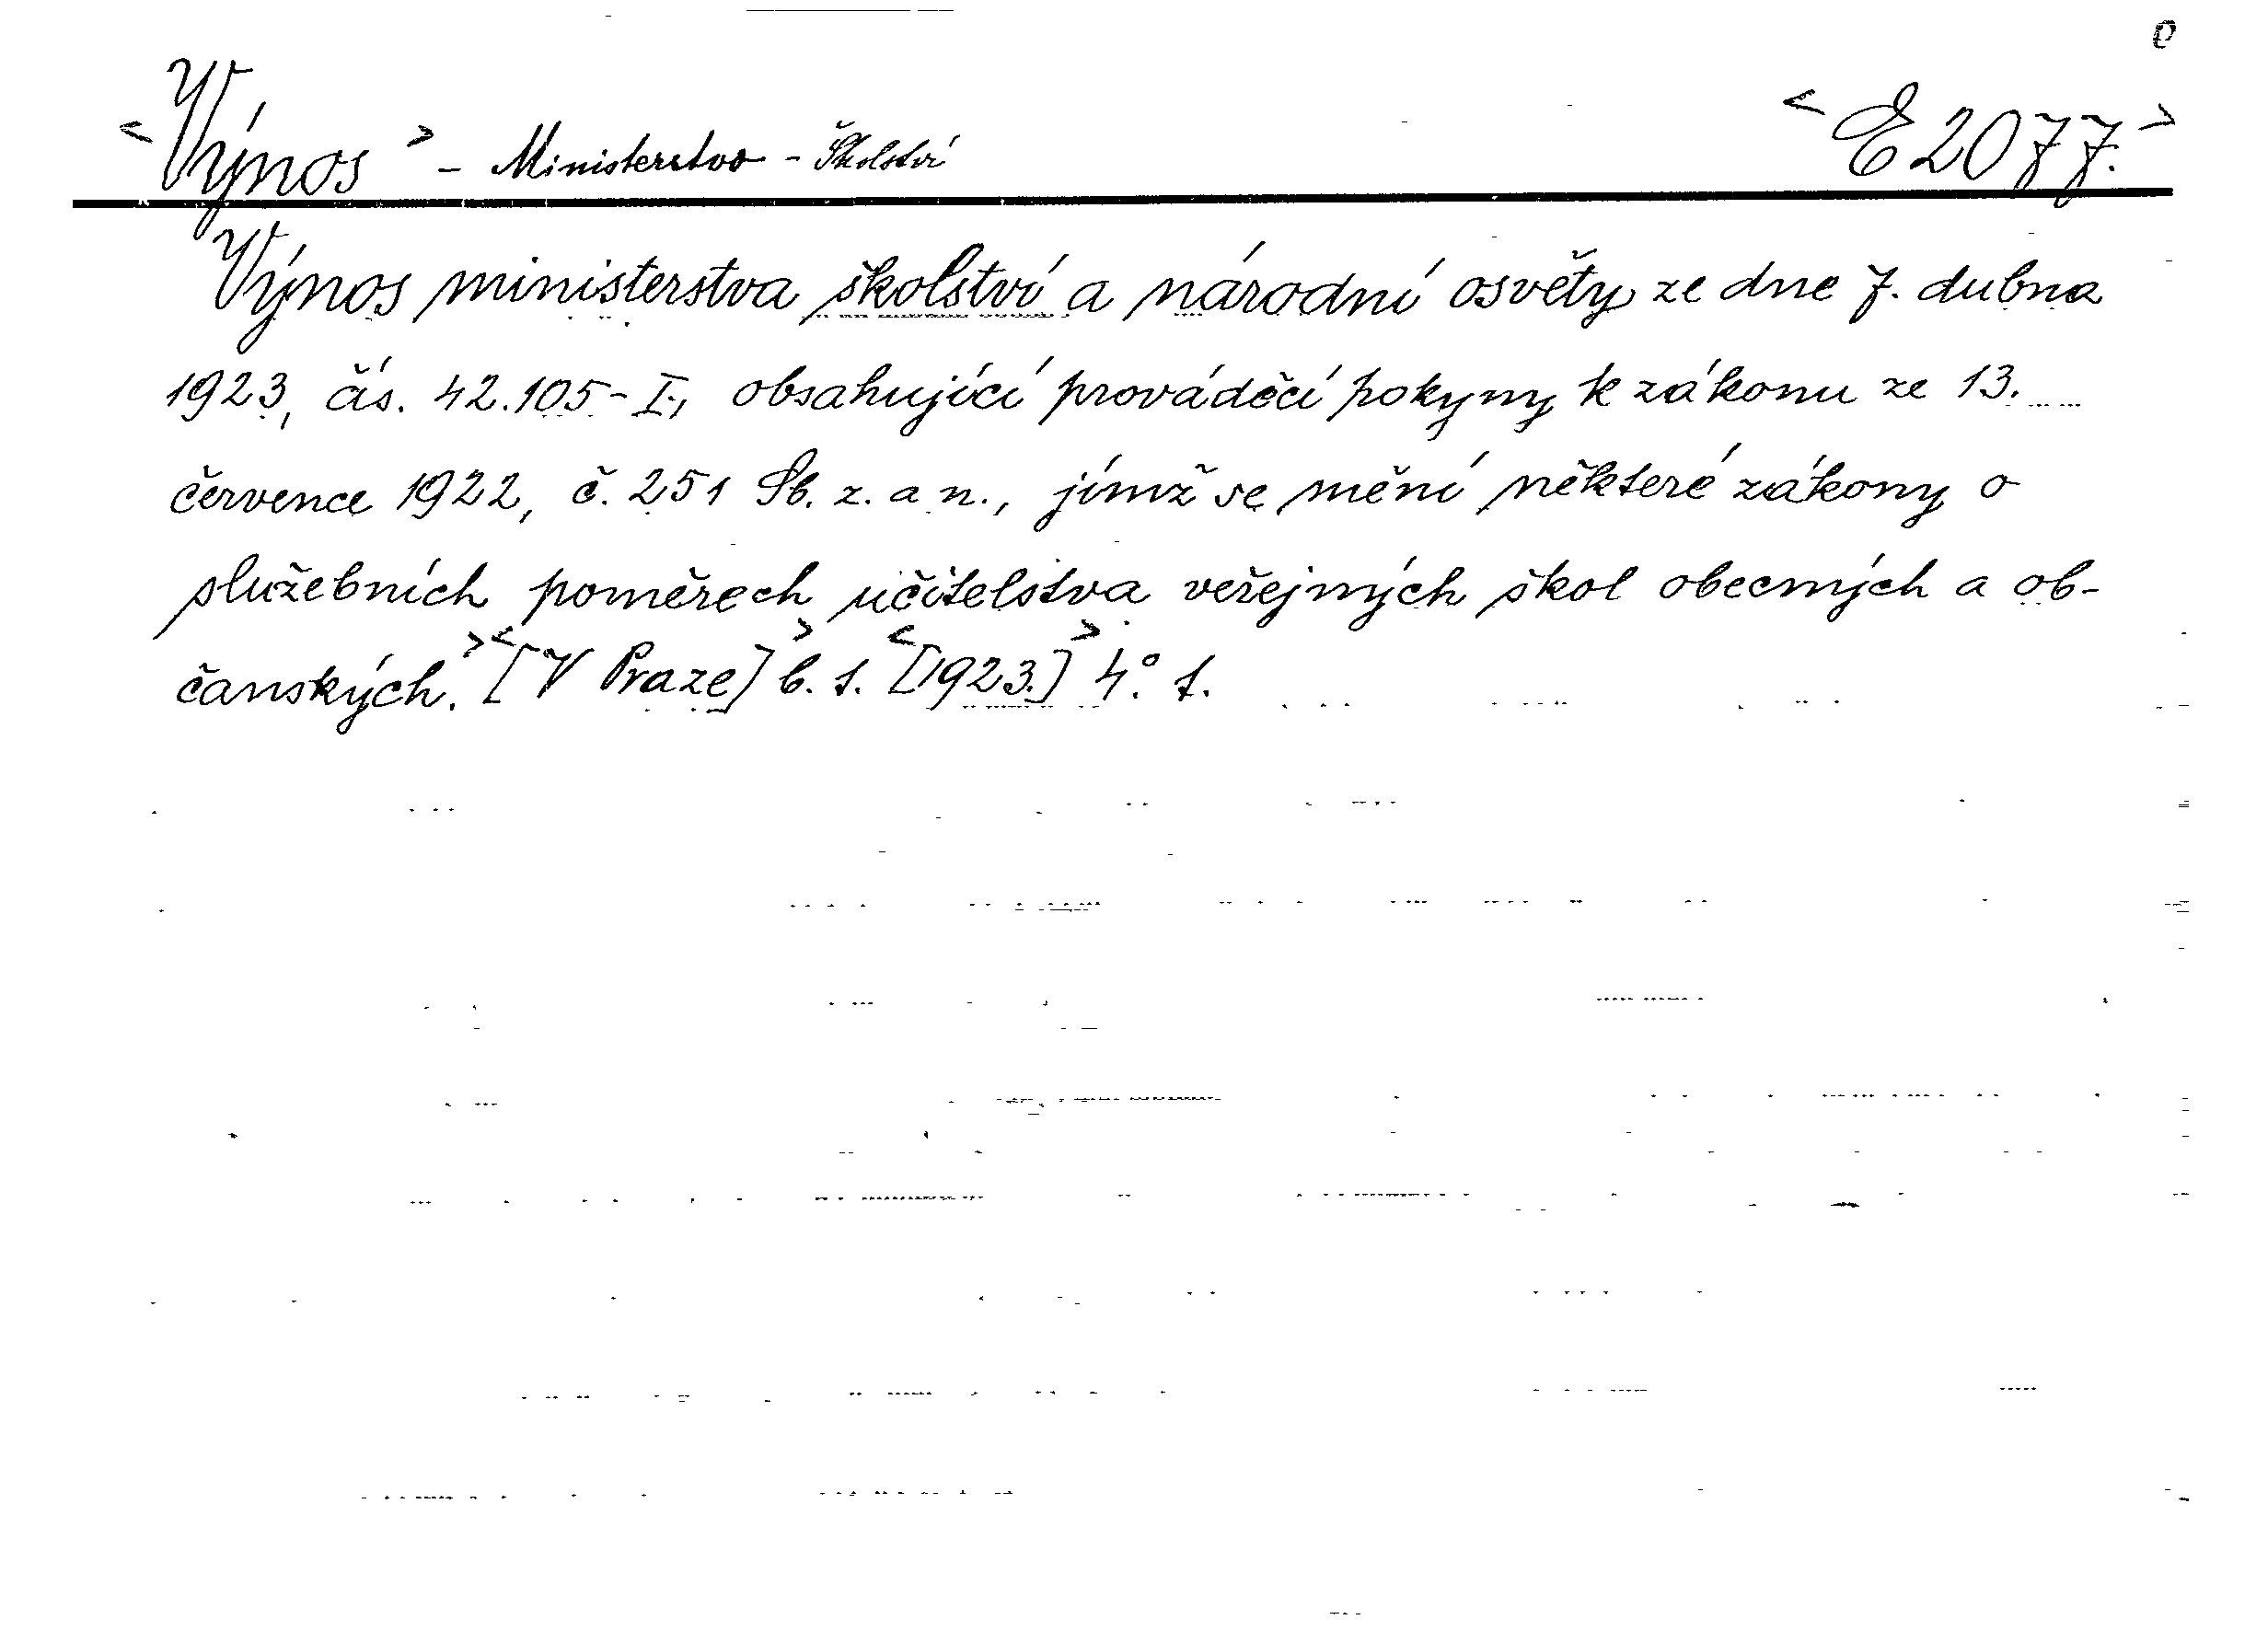 <Výnos> - Ministerstvo - Školství <E 2077.>
Výnos ministerstva školství a národní osvěty ze dne 7. dubna
1923, čís. 42.105-I., obsahující prováděcí pokyny k zákonu ze 13.
července 1922, č. 251 Sb. z. a n., jímž se mění některé zákony o
služebních poměrech učitelstva veřejných škol obecných a ob-
čanských.> <[V Praze]> b. t. <[1923.]> 4°. 1.